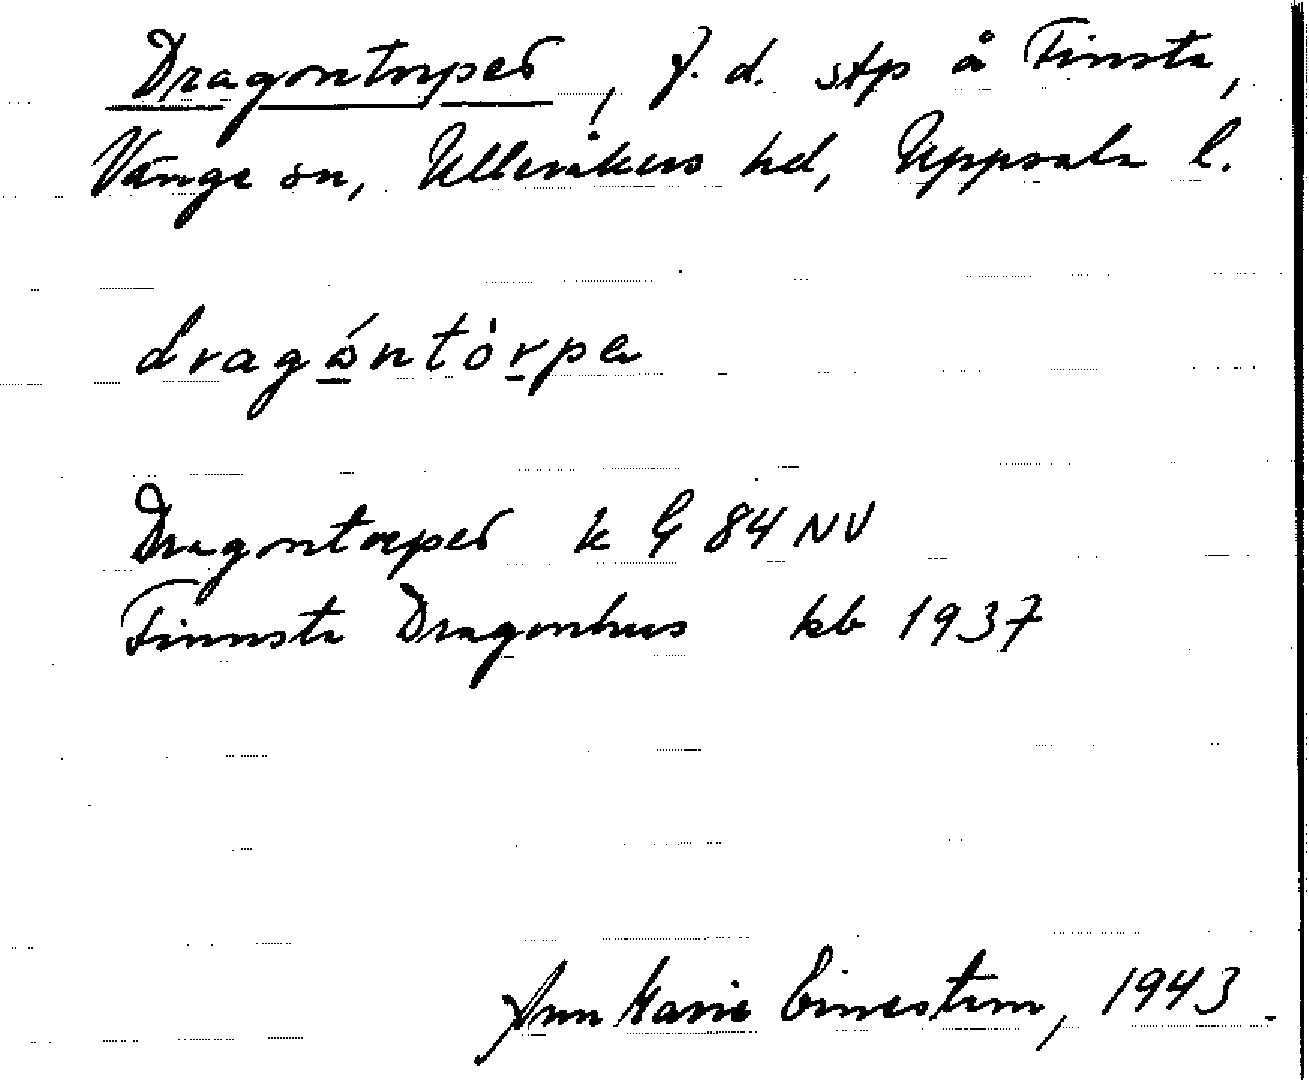 Dragontorpet, f. d. stp å Finsta,
Vänge sn, Ulleråkers hd, Uppsala l.
dragóntòrpa
Dragontorpet k G 84 NV
Finnsta Dragonhus kb 1937
Ann Marie Ernestam, 1943.